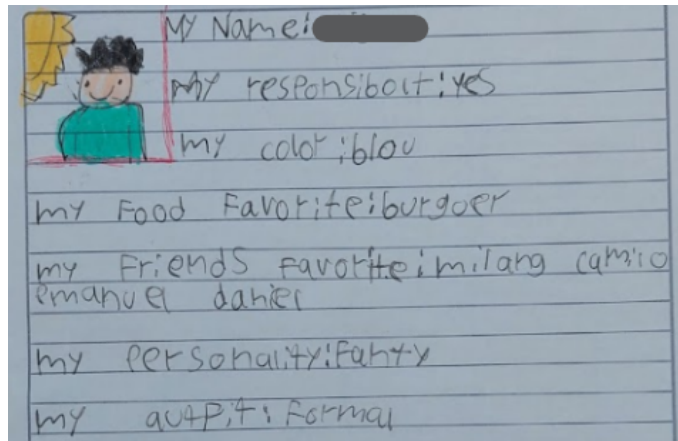 My Name:
My responsibolt:yes
my color:blou
my Food Favorite:burguer
my Friends Favorite:milang camilo
emanuel daniel
my personality:Fanty
my autpit:Formal